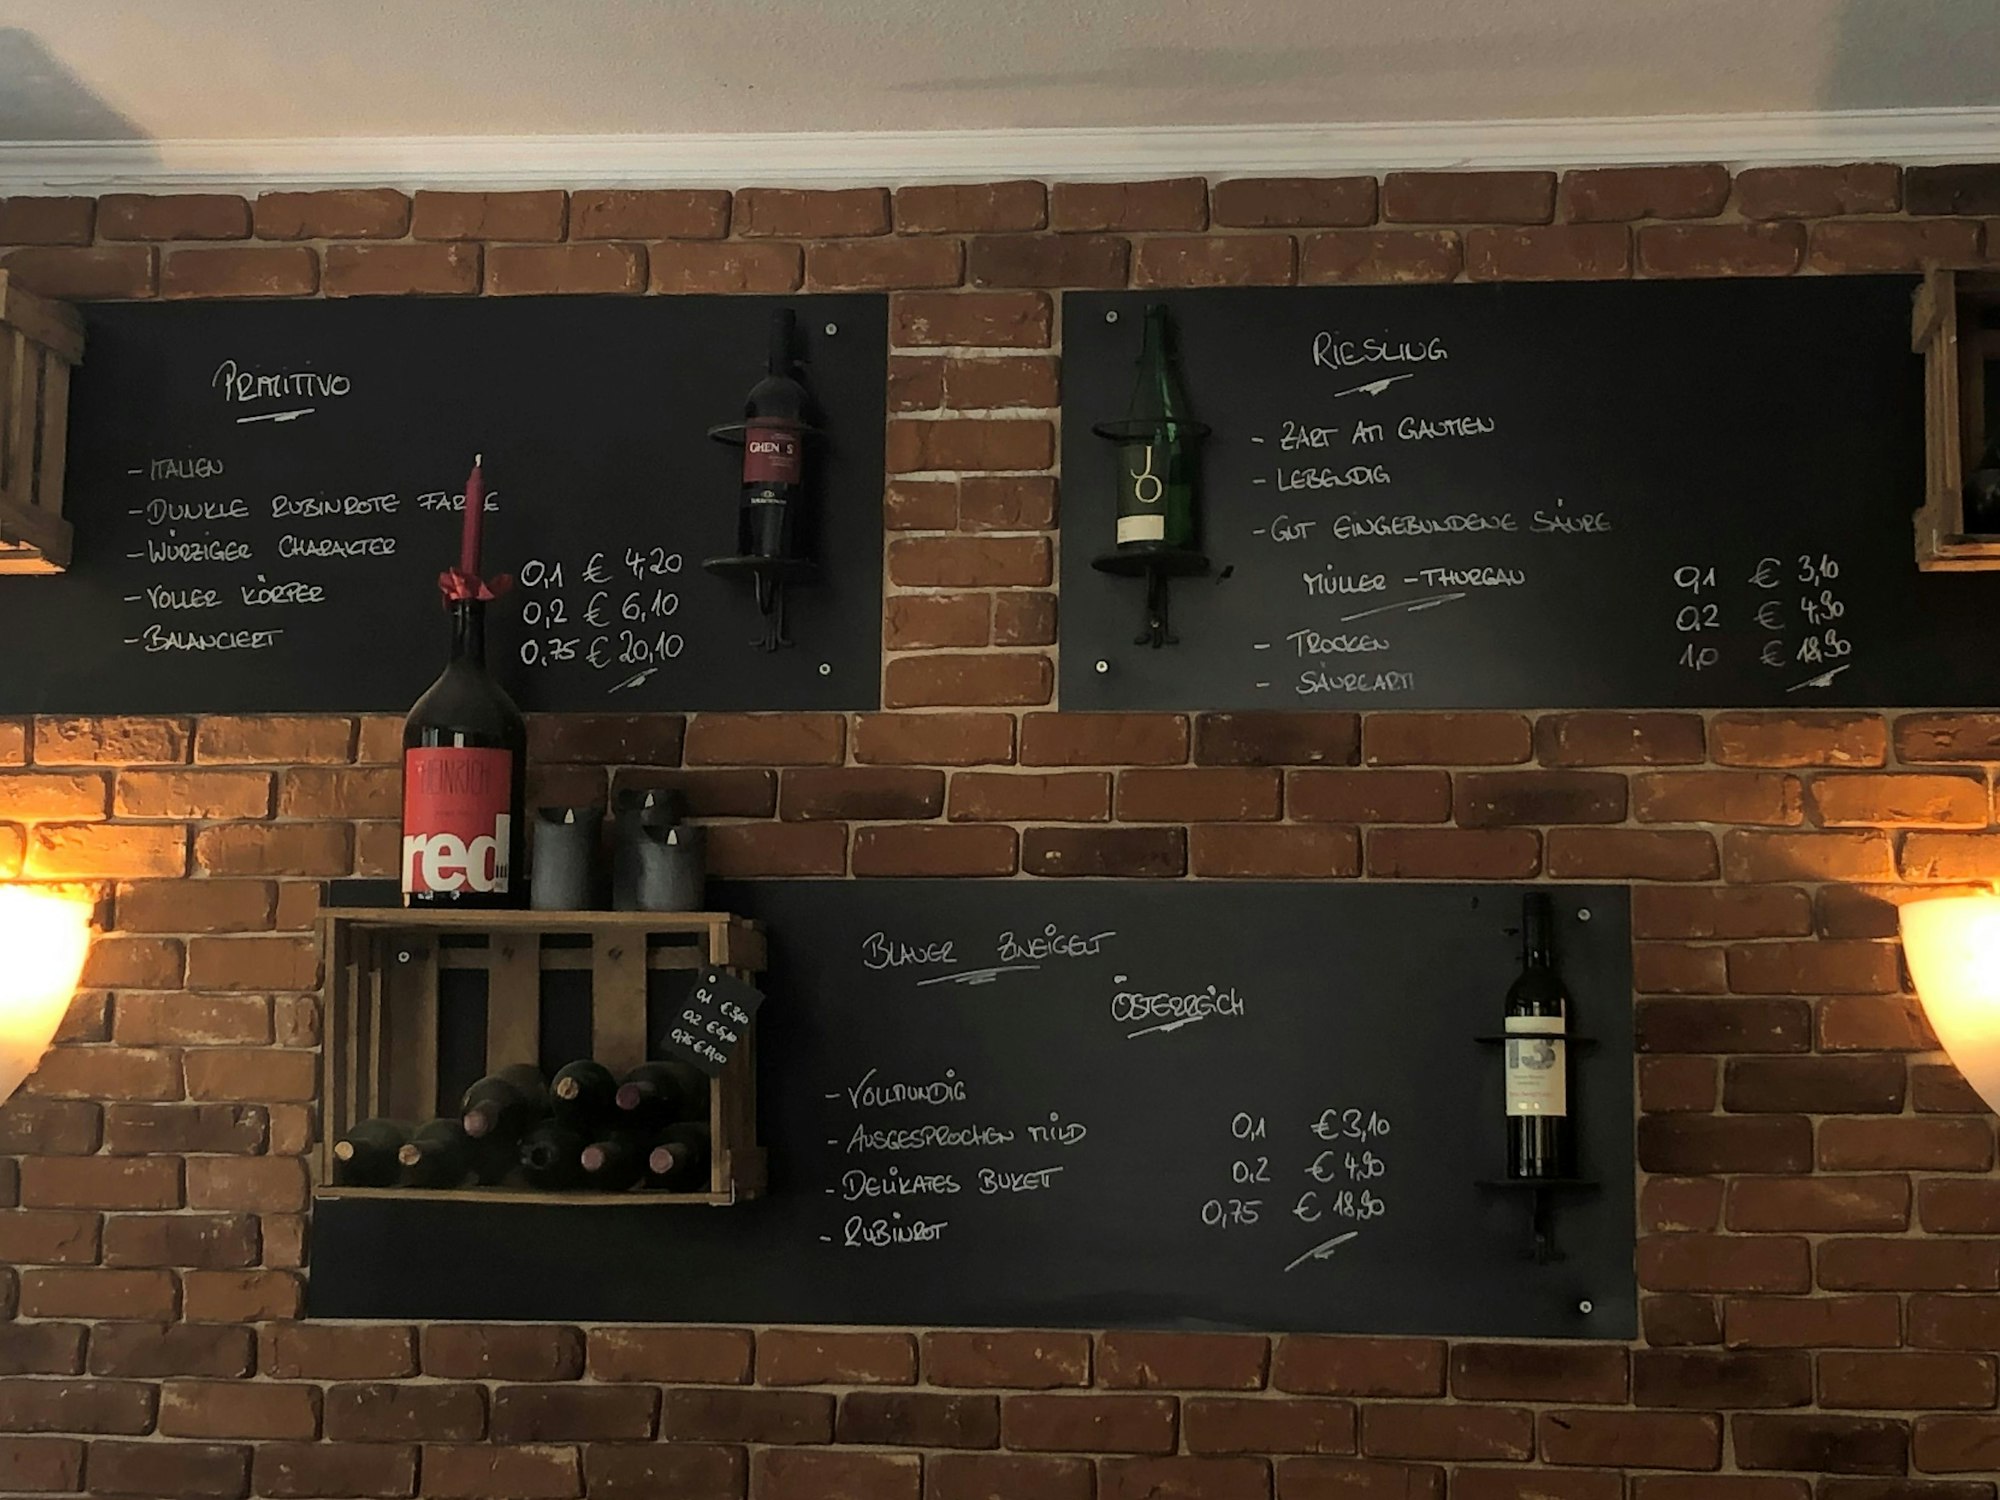 PRIMITIVO
- ITALIEN
- DUNKLE RUBINROTE FARBE
- WÜRZIGER CHARAKTER
- VOLLER KÖRPER
- BALANCIERT
0,1 € 4,20
0,2 € 6,10
0,75 € 20,10
GHENOS
RIESLING
- ZART AM GAUMEN
- LEBENDIG
- GUT EINGEBUNDENE SÄURE
MÜLLER - THURGAU
- TROCKEN
- SÄUREARM
0,1 € 3,10
0,2 € 4,90
1,0 € 18,90
JO
HEINRICH
red
0,1 € 3,60
0,2 € 5,10
0,75 €
BLAUER ZWEIGELT
ÖSTERREICH
- VOLLMUNDIG
- AUSGESPROCHEN MILD
- DELIKATES BUKETT
- RUBINROT
0,1 € 3,10
0,2 € 4,90
0,75 € 18,90